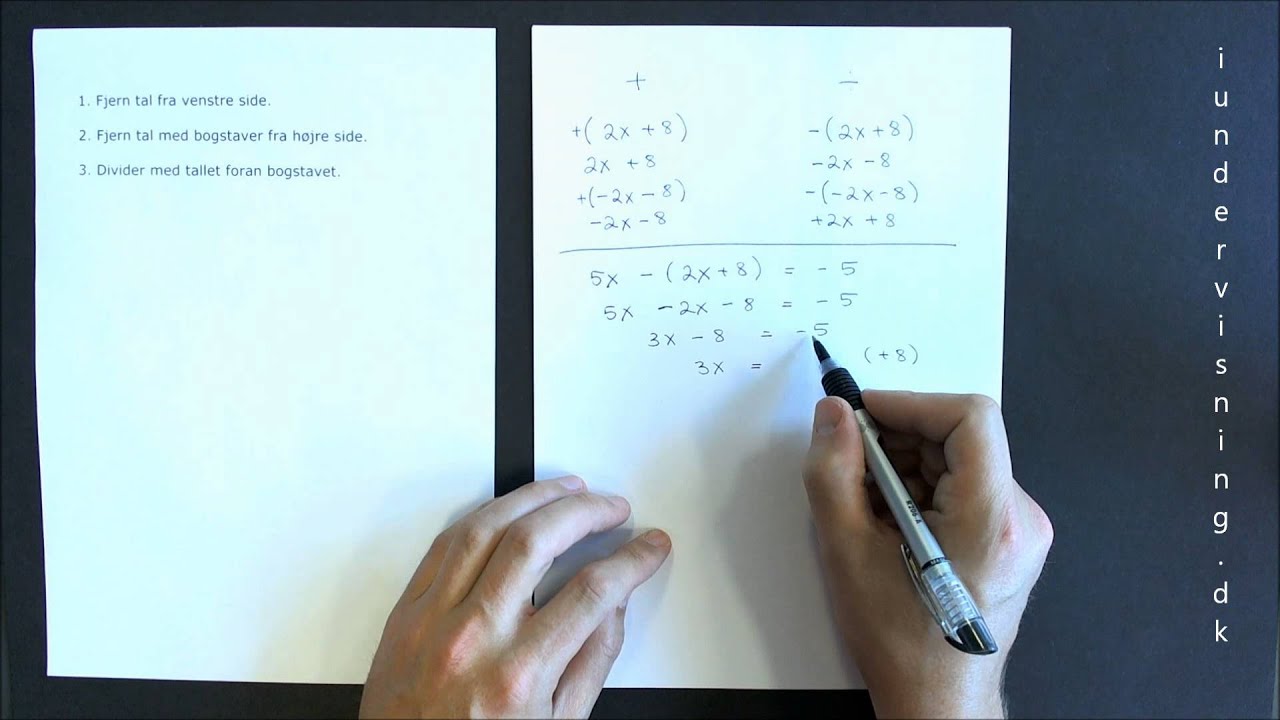 1. Fjern tal fra venstre side.
2. Fjern tal med bogstaver fra højre side.
3. Divider med tallet foran bogstavet.
+ ÷
+(2x +8) -(2x+8)
2x +8 -2x -8
+(-2x-8) -(-2x-8)
-2x-8 +2x +8
5x - (2x+8) = -5
5x -2x - 8 = -5
3x - 8 = -5
3x = (+8)
iundervisning.dk